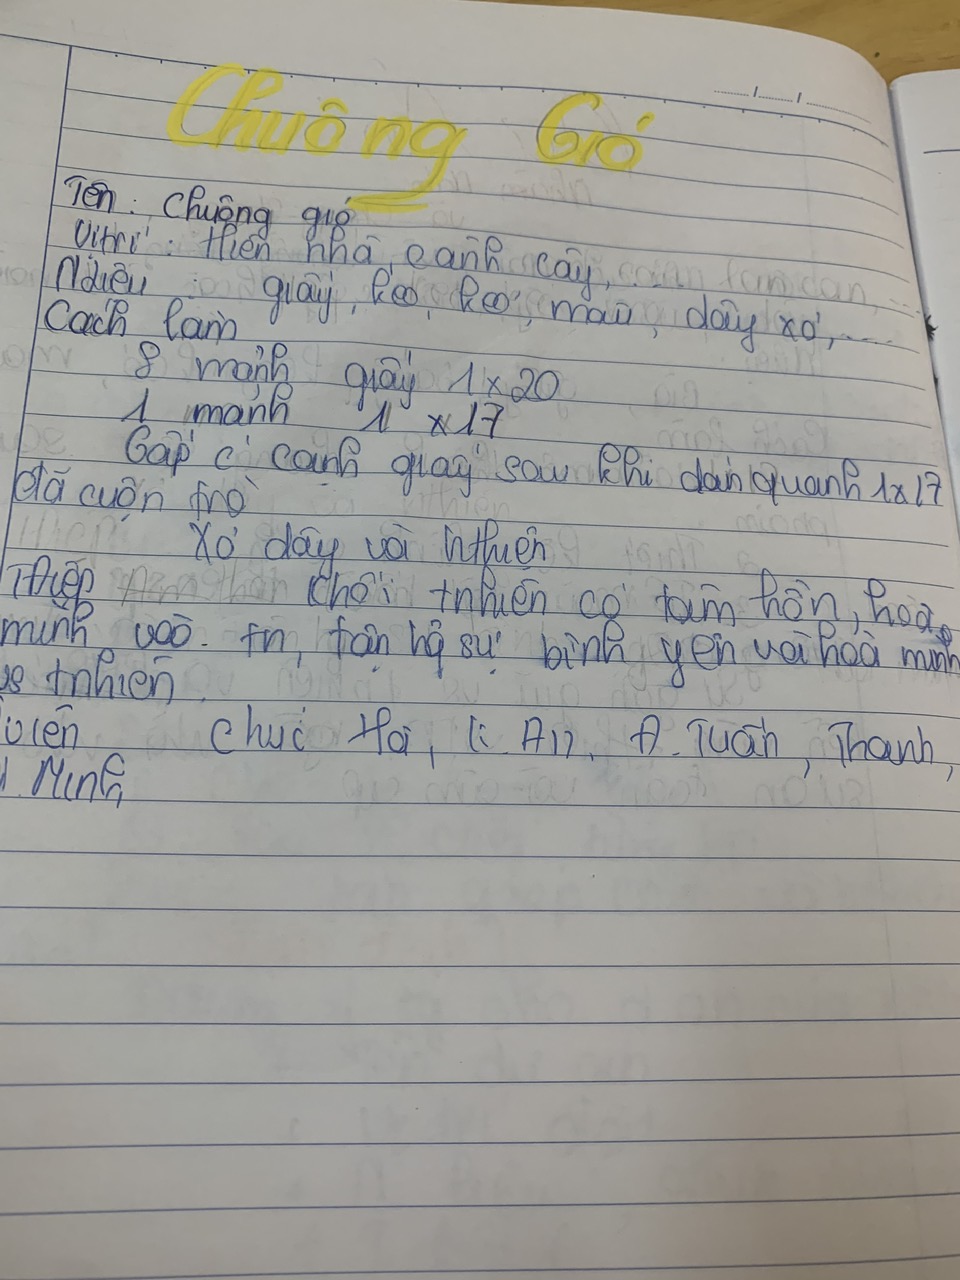 Chuông Gió
Tên: Chuông gió
Vitrí: thiên nhà, cành cây, ...
N liệu giấy, keo, kéo, màu, dây xỏ, ...
Cách làm
8 mảnh giấy 1x20
1 mảnh 1x17
Gấp c cạnh giấy sau khi dán quanh 1x17
đã cuộn trò
Xỏ dây và
Thiệp Chơi tnhiên có tâm hồn, hoà
mình vào tn, tận hg sự bình yên và hoà mình
tnhiên
Chúc Hà, A. Tuấn, Thanh,
Minh